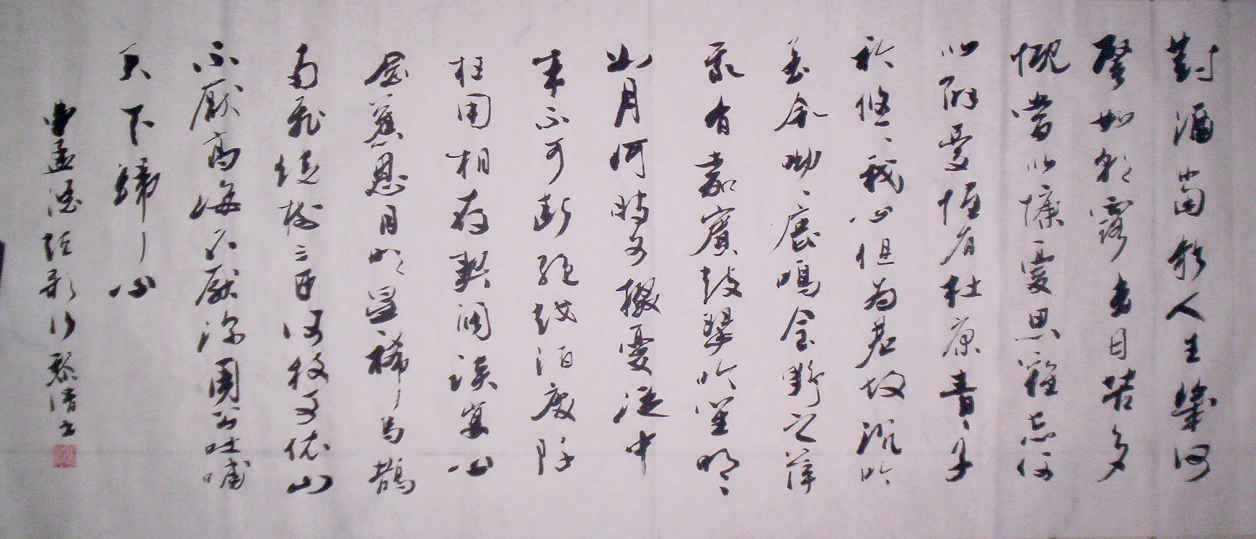 對酒當歌人生幾何
譬如朝露去日苦多
慨當以慷憂思難忘何
以解憂惟有杜康青〻子
衿悠〻我心但為君故沉吟
至今呦〻鹿鳴食野之苹
我有嘉賓鼓瑟吹笙明〻
如月何時可掇憂從中
來不可断絕越陌度阡
枉用相存契闊談宴心
念舊恩月明星稀烏鵲
南飛繞樹三匝何枝可依山
不厭高海不厭深周公吐哺
天下歸心
曹孟德短歌行黎清书